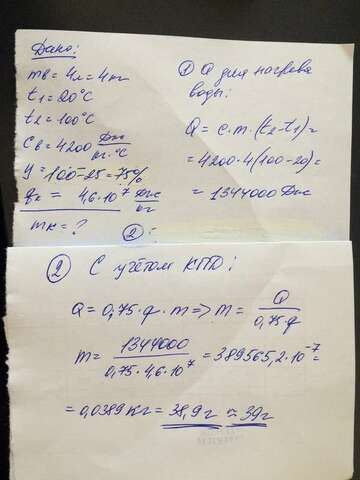 Дано:
mв = 4л = 4кг
t1 = 20°C
t2 = 100°C
Cв = 4200 Дж/кг·°C
η = 100-25 = 75%
qк = 4,6·10⁷ Дж/кг
mк = ?
① Q для нагрева
воды:
Q = c·m·(t2-t1) =
= 4200·4(100-20) =
= 1344000 Дж
②:
② С учётом КПД:
Q = 0,75·q·m => m = Q/0,75·q
m = 1344000/0,75·4,6·10⁷ = 389565,2·10⁻⁷ =
= 0,0389кг = 38,9г ≈ 39г